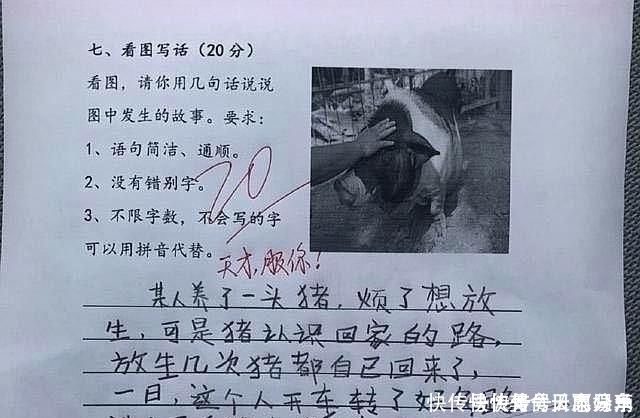 七、看图写话（20分）
看图，请你用几句话说说
图中发生的故事。要求：
1、语句简洁、通顺。
2、没有错别字。
3、不限字数，不会写的字
可以用拼音代替。
20
天才，服你！
某人养了一头猪，烦了想放
生，可是猪认识回家的路，
放生几次猪都自已回来了，
一日，这个人开车转了好